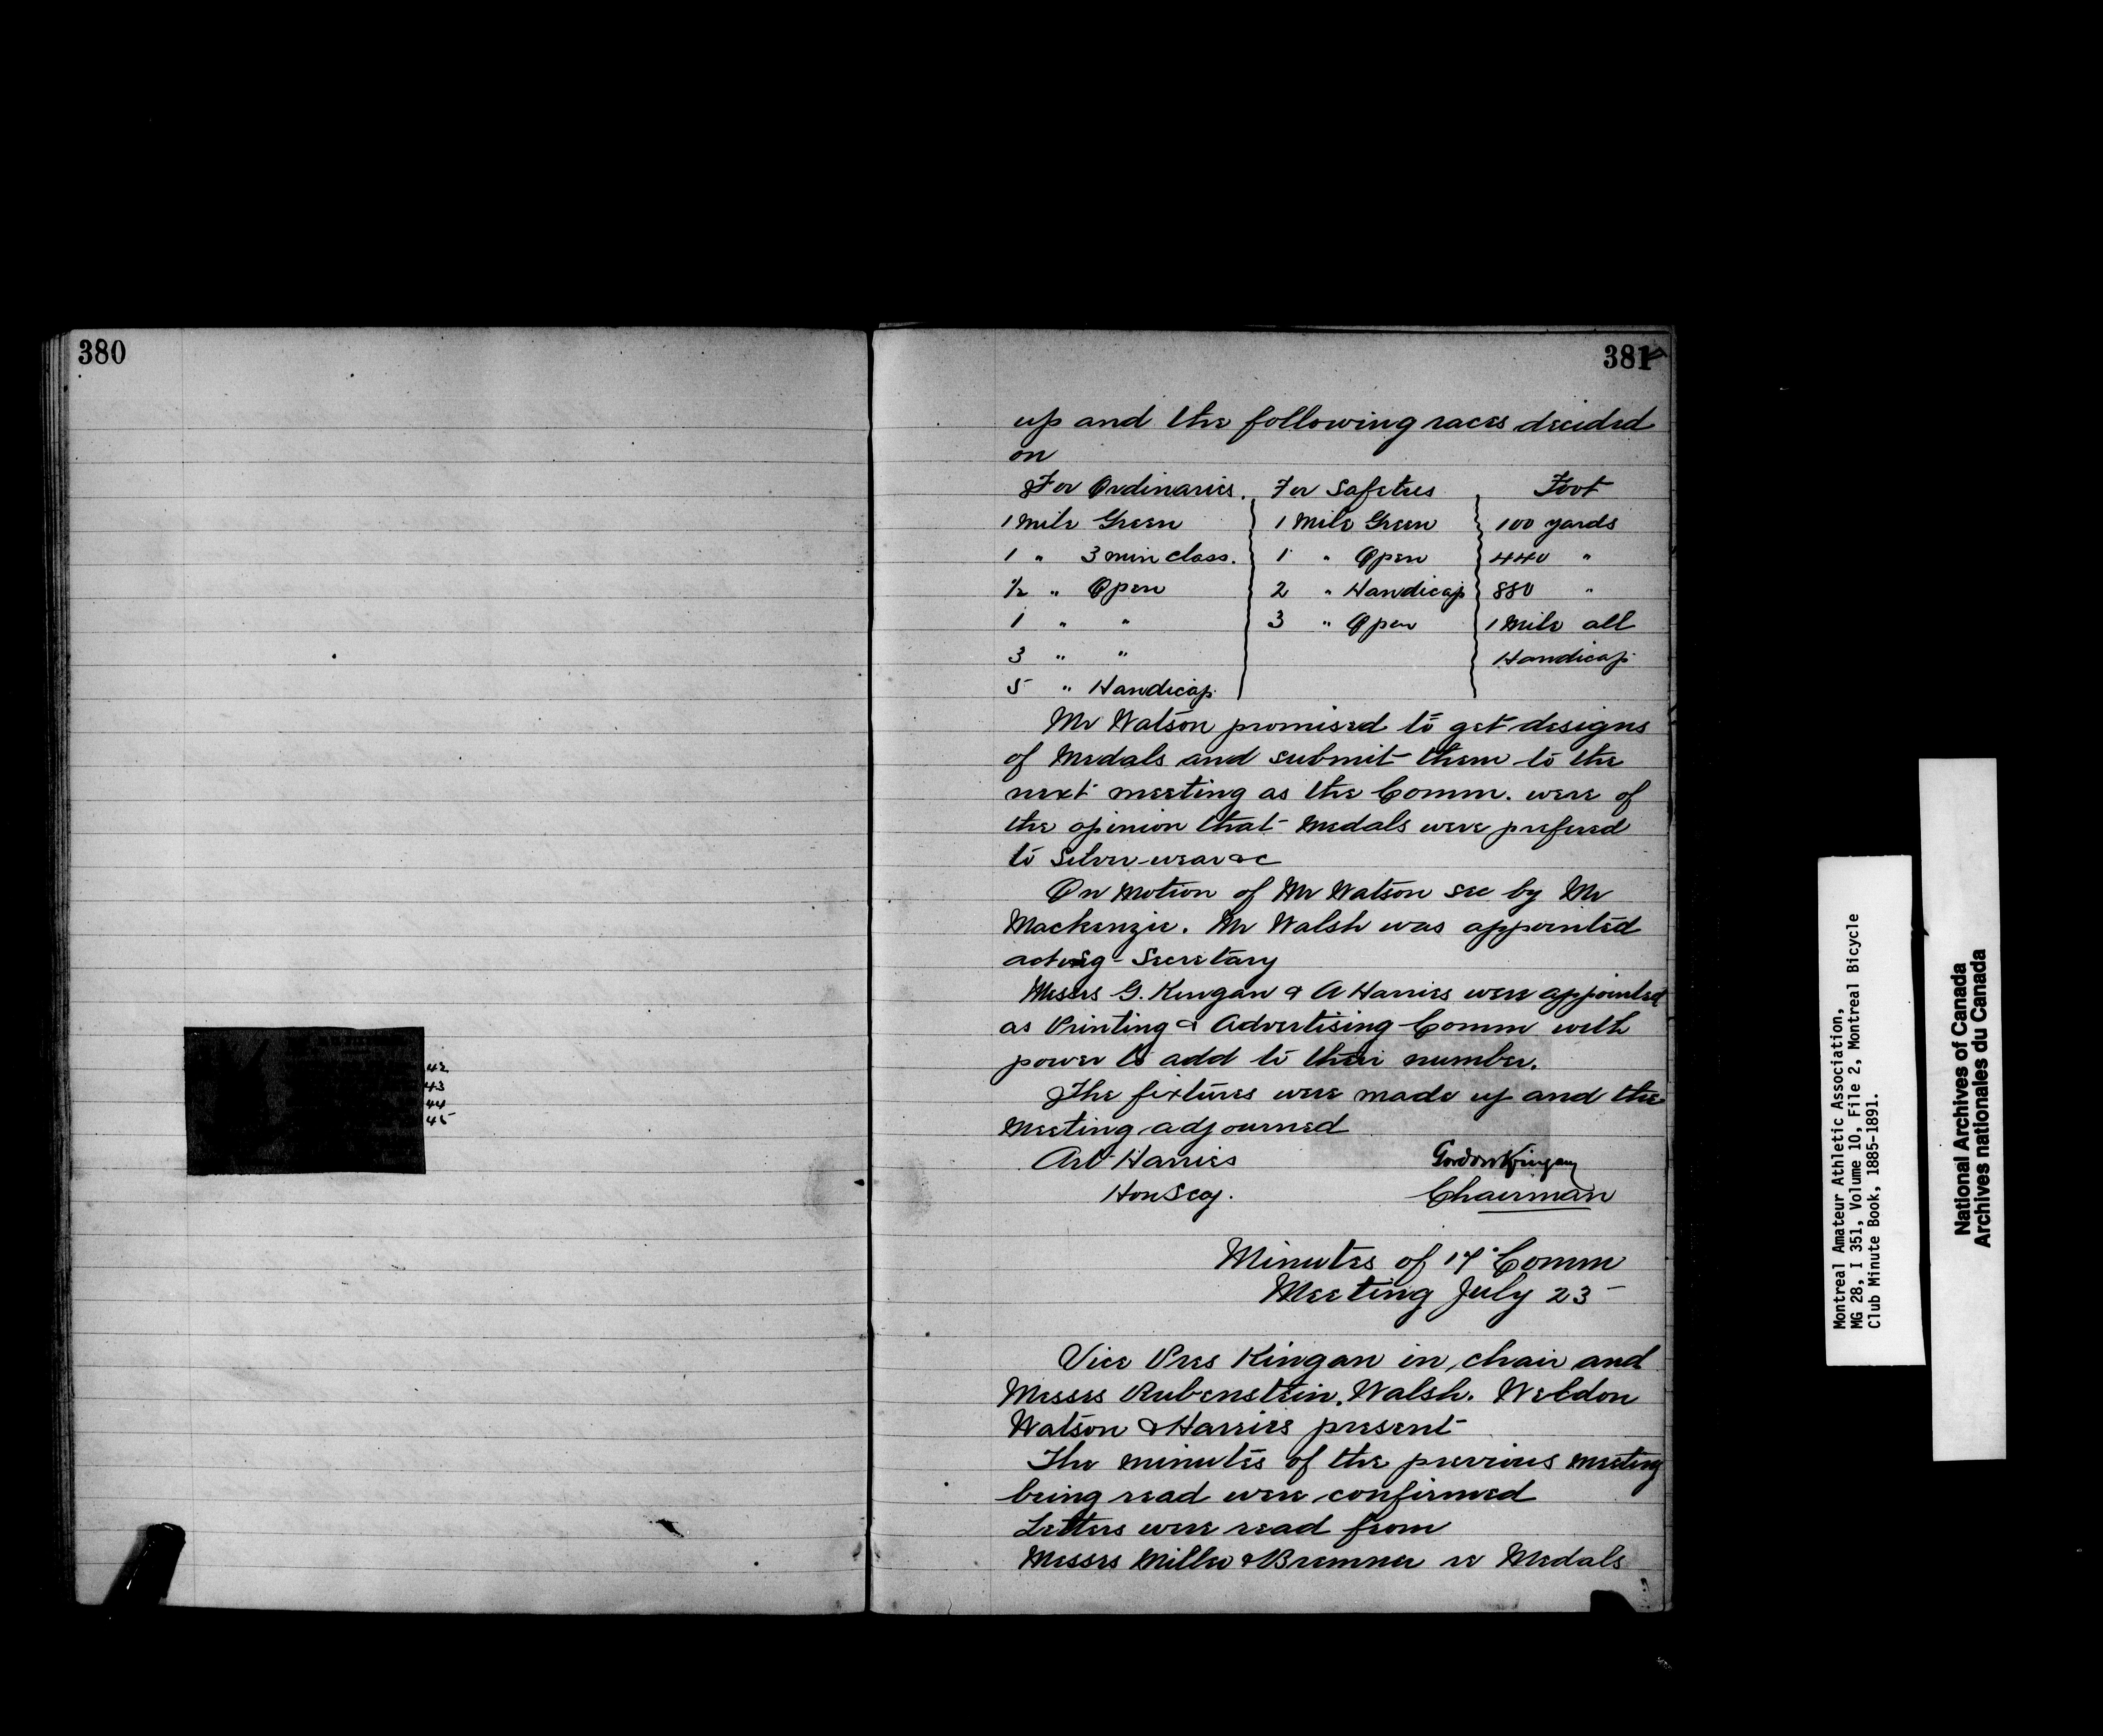 380
42
43
44
45
381
up and the following races decided
on
For Ordinaries. For Safeties Foot
1 Mile Green 1 Mile Green 100 yards
1 " 3 min class. 1 " Open 440 "
1/2 " Open 2 " Handicap 880 "
1 " " 3 " Open 1 Mile all
3 " " Handicap
5 " Handicap
Mr Watson promised to get designs
of Medals and submit them to the
next meeting as the Comm. were of
the opinion that medals were prefered
to Silver-wear &c
On Motion of Mr Watson sec by Mr
Mackenzie. Mr Walsh was appointed
acting-Secretary
Messrs G. Kingan & A Harries were appointed
as Printing & Advertising Comm with
power to add to their number.
The fixtures were made up and the
Meeting adjourned
Art Harries Gordon Kingan
Hon Secy. Chairman
Minutes of 17 Comm
Meeting July 23
Vice Pres Kingan in chair and
Messrs Rubenstein. Walsh. Weldon
Watson & Harries present
The minutes of the previous meeting
being read were confirmed
Letters were read from
Messrs Miller & Bremner re Medals
Montreal Amateur Athletic Association,
MG 28, I 351, Volume 10, File 2, Montreal Bicycle
Club Minute Book, 1885-1891.
National Archives of Canada
Archives nationales du Canada